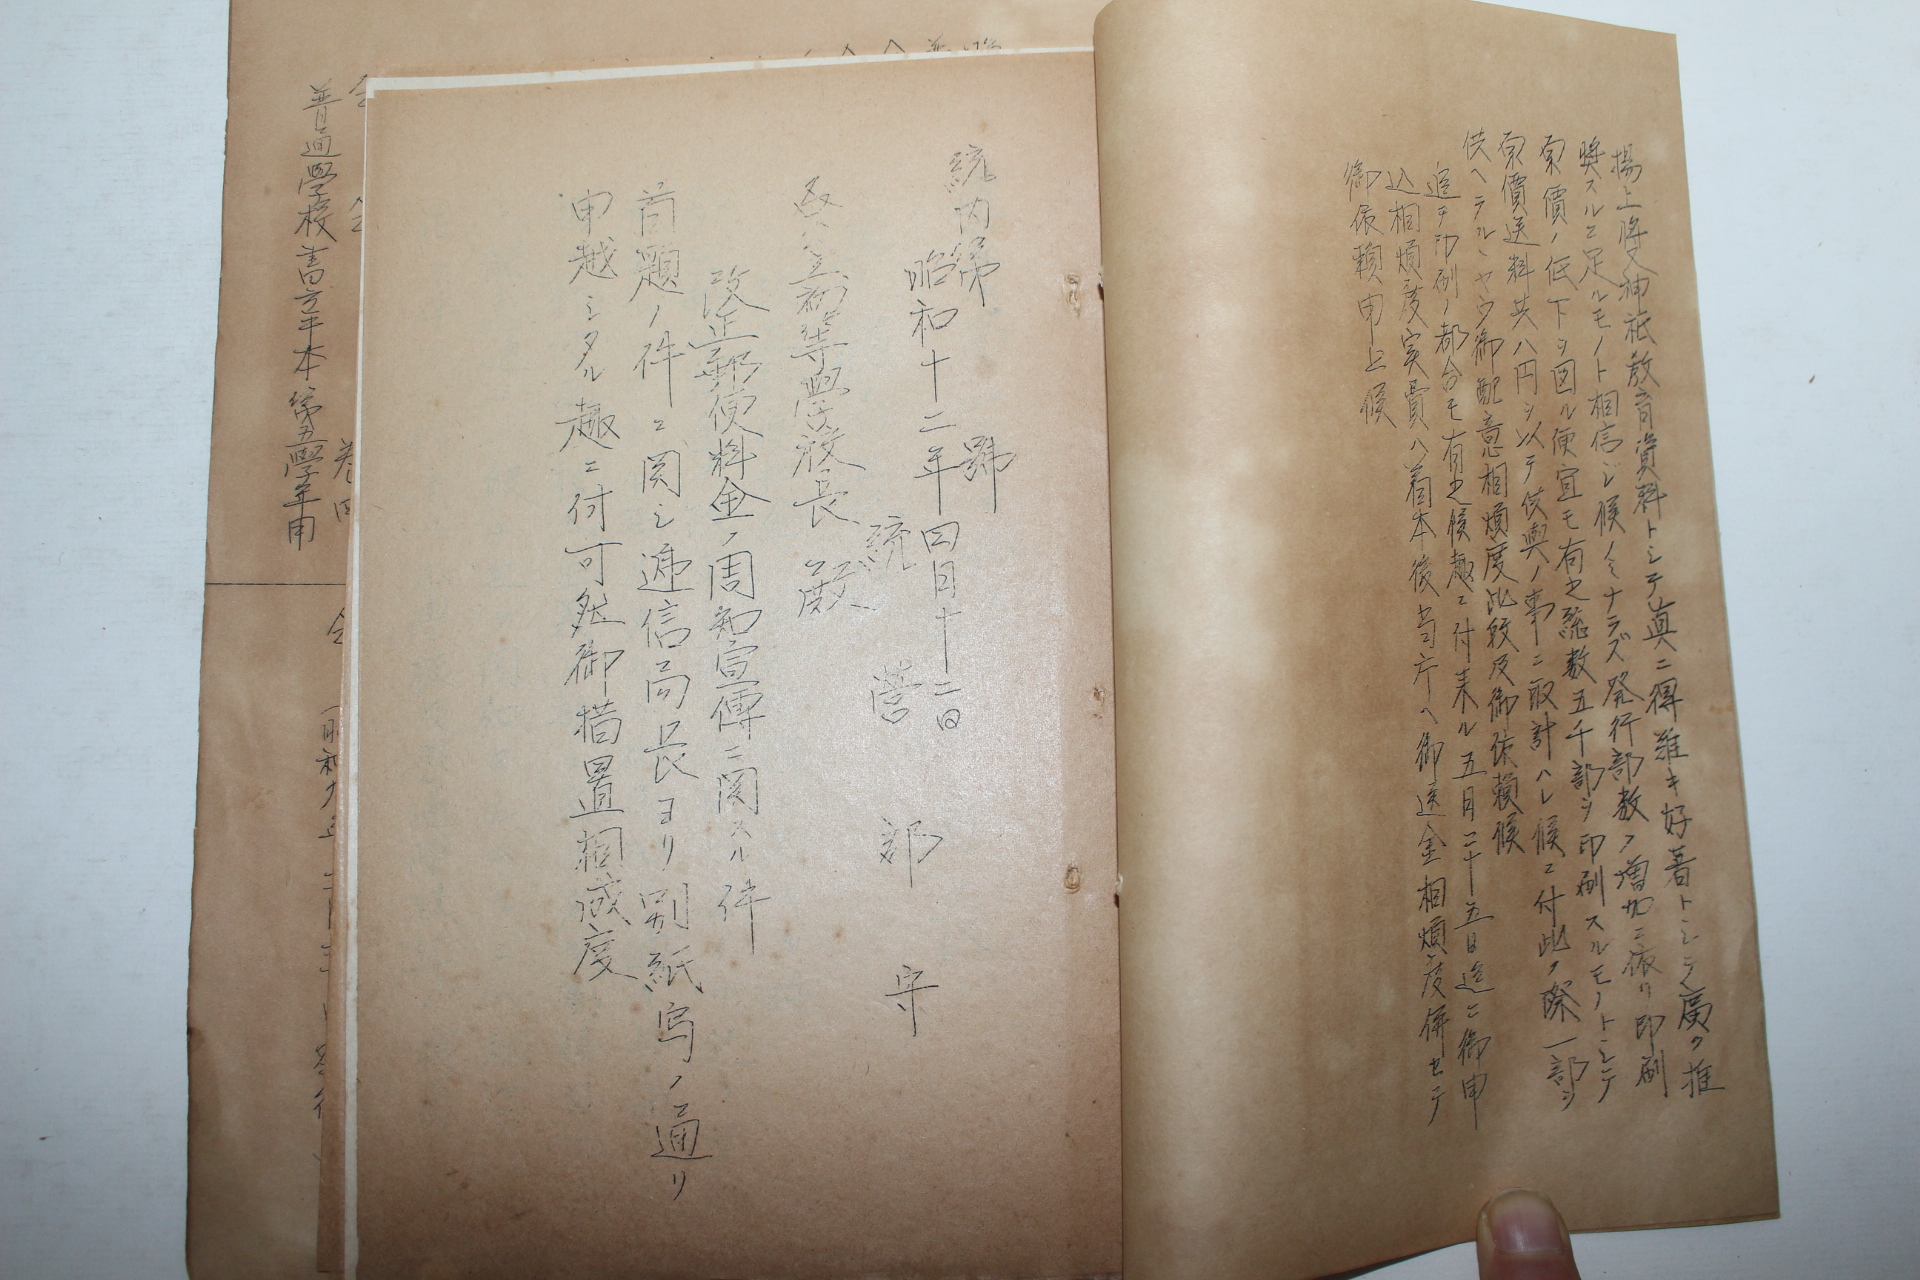 揚上將又神祇教育資料トシテ真ニ得難キ好著トシテ廣ク推
奨スルニ足ルモノト相信ジ候ノミナラズ発行部数ノ増加ニ依リ印刷
原價ノ低下ヲ図ル便宜モ有之総数五千部ヲ印刷スルモノトシテ
原價送料共八円ヲ以テ供與ノ事ニ取計ハレ候ニ付此ノ際一部ヲ
供ヘラルヽヤウ御配意相煩度此段及御依頼候
追テ印刷ノ都合モ有之候趣ニ付来ル五月二十五日迄ニ御申
込相煩度実費ハ着本後当庁ヘ御送金相煩度併セテ
御依頼申上候
統内第 號
昭和十二年四月十二日
統営郡守
各公立初等學校長殿
改正郵便料金ノ周知宣傳ニ関スル件
首題ノ件ニ関シ逓信局長ヨリ別紙写ノ通リ
申越シタル趣ニ付可然御措置相成度
卷四
普通學校書方手本第五學年用